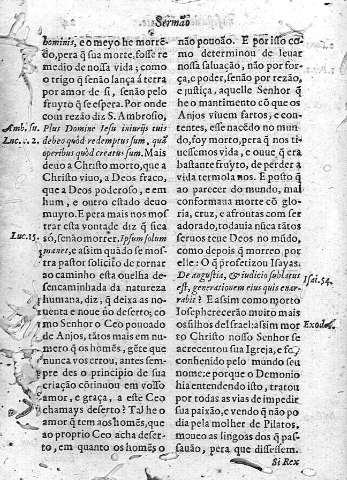 Sermão
hominis, e o meyo he morrē-
do, pera q̃ sua morte fosse re
medio de nossa vida; como
o trigo q̃ senão lança á terra
por amor de si, senão pelo
fruyto q̃ se espera. Por onde
com rezão diz S. Ambrosio,
Amb. su.
Luc. c. 2.
Plus Domine Iesu iniurijs tuis
debeo quòd redemptus sum, quã
operibus quòd creatus sum. Mais
deuo a Christo morto, que a
Christo viuo, a Deos fraco,
que a Deos poderoso, e em
hum, e outro estado deuo
muyto. E pera mais nos mos
trar esta vontade diz q̃ fica
só, senão morrer. Ipsum solum
Luc. 15.
manet, e assim quãdo se mos-
tra pastor solicito de tornar
ao caminho esta ouelha de-
sencaminhada da natureza
humana, diz, q̃ deixa as no-
uenta e noue no deserto; co
mo Senhor o Ceo pouoado
de Anjos, tãtos mais em nu-
mero q̃ os homēs, gēte que
nunca vos errou, antes sem-
pre des o principio de sua
criação cõtinuou em vosso
amor, e graça, a este Ceo
chamays deserto? Tal he o
amor q̃ tem aos homēs, que
ao proprio Ceo acha deser-
to, em quanto os homēs o
não pouoão. E por isso co-
mo determinou de leuar
nossa saluação, não por for-
ça, e poder, senão por rezão,
e justiça, aquelle Senhor q̃
he o mantimento cõ que os
Anjos viuem fartos, e con-
tentes, esse nacēdo no mun-
do, foy morto, pera q̃ nos ti-
uessemos vida, e ouue q̃ era
bastante fruyto, de perder á
vida termola nos. E posto q̃
ao parecer do mundo, mal
conformaua morte cõ glo-
ria, cruz, e afrontas com ser
adorado, todauia nũca tãtos
seruos teue Deos no mũdo,
como depois q̃ morreo por
elle: O q̃ profetizou Isayas.
De angustia, & iudicio sublatus
Isai. 54.
est, generationem eius quis enar-
rabit? E assim como morto
Ioseph crecerão muyto mais
os filhos de Israel: assim mor
Exod. 1.
to Christo nosso Senhor se
acrecentou sua Igreja, e foy
conhecido pelo mundo seu
nome: e porque o Demonio
hia entendendo isto, tratou
por todas as vias de impedir
sua paixão, e vendo q̃ não po
dia pela molher de Pilatos,
moueo as lingoas dos q̃ pas-
sauão, pera que dissessem.
Si Rex